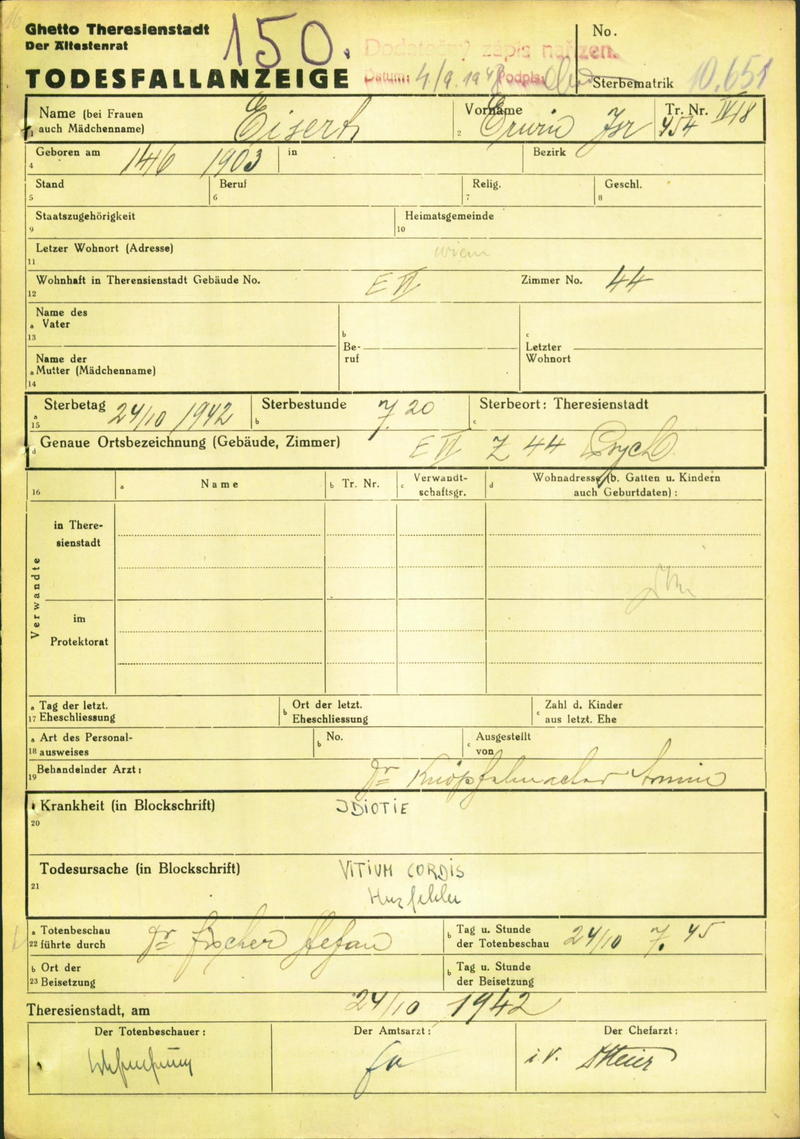 Ghetto Theresienstadt
Der Ältestenrat
TODESFALLANZEIGE
150.
Dodatečný zápis nařízen.
Datum: 4/9 1948 Podpis:
No.
Sterbematrik 10.651
Name (bei Frauen auch Mädchenname) Eisert
1
Vorname Erwin Isr
2
Tr. Nr. IV/8
454
Geboren am 14/6 1903 in Bezirk
4
Stand Beruf Relig. Geschl.
5 6 7 8
Staatszugehörigkeit Heimatsgemeinde
9 10
Letzer Wohnort (Adresse) Wien
11
Wohnhaft in Therensienstadt Gebäude No. E VI Zimmer No. 44
12
Name des
a Vater
13
b
Be-
ruf
c
Letzter
Wohnort
Name der
a Mutter (Mädchenname)
14
Sterbetag 24/10 1942 Sterbestunde 7 20 Sterbeort: Theresienstadt
a 15 b c
d Genaue Ortsbezeichnung (Gebäude, Zimmer) E VI Z 44 Psych
16 a Name b Tr. Nr. c Verwandt-
schaftsgr. d Wohnadresse (b. Gatten u. Kindern
auch Geburtdaten) :
Verwandte
in There-
sienstadt
im
Protektorat
a Tag der letzt.
17 Eheschliessung
b Ort der letzt.
Eheschliessung
c Zahl d. Kinder
aus letzt. Ehe
a Art des Personal-
18 ausweises
b No.
c Ausgestellt
von
19 Behandelnder Arzt: Dr Knöpfelmacher Armin
Krankheit (in Blockschrift) IDIOTIE
20
Todesursache (in Blockschrift) VITIUM CORDIS
21
Herzfehler
a Totenbeschau
22 führte durch Dr Fischer Stefan
b Tag u. Stunde
der Totenbeschau 24/10 7. 45
b Ort der
23 Beisetzung
b Tag u. Stunde
der Beisetzung
Theresienstadt, am 24/10 1942
Der Totenbeschauer: Der Amtsarzt: Der Chefarzt:
i.V.